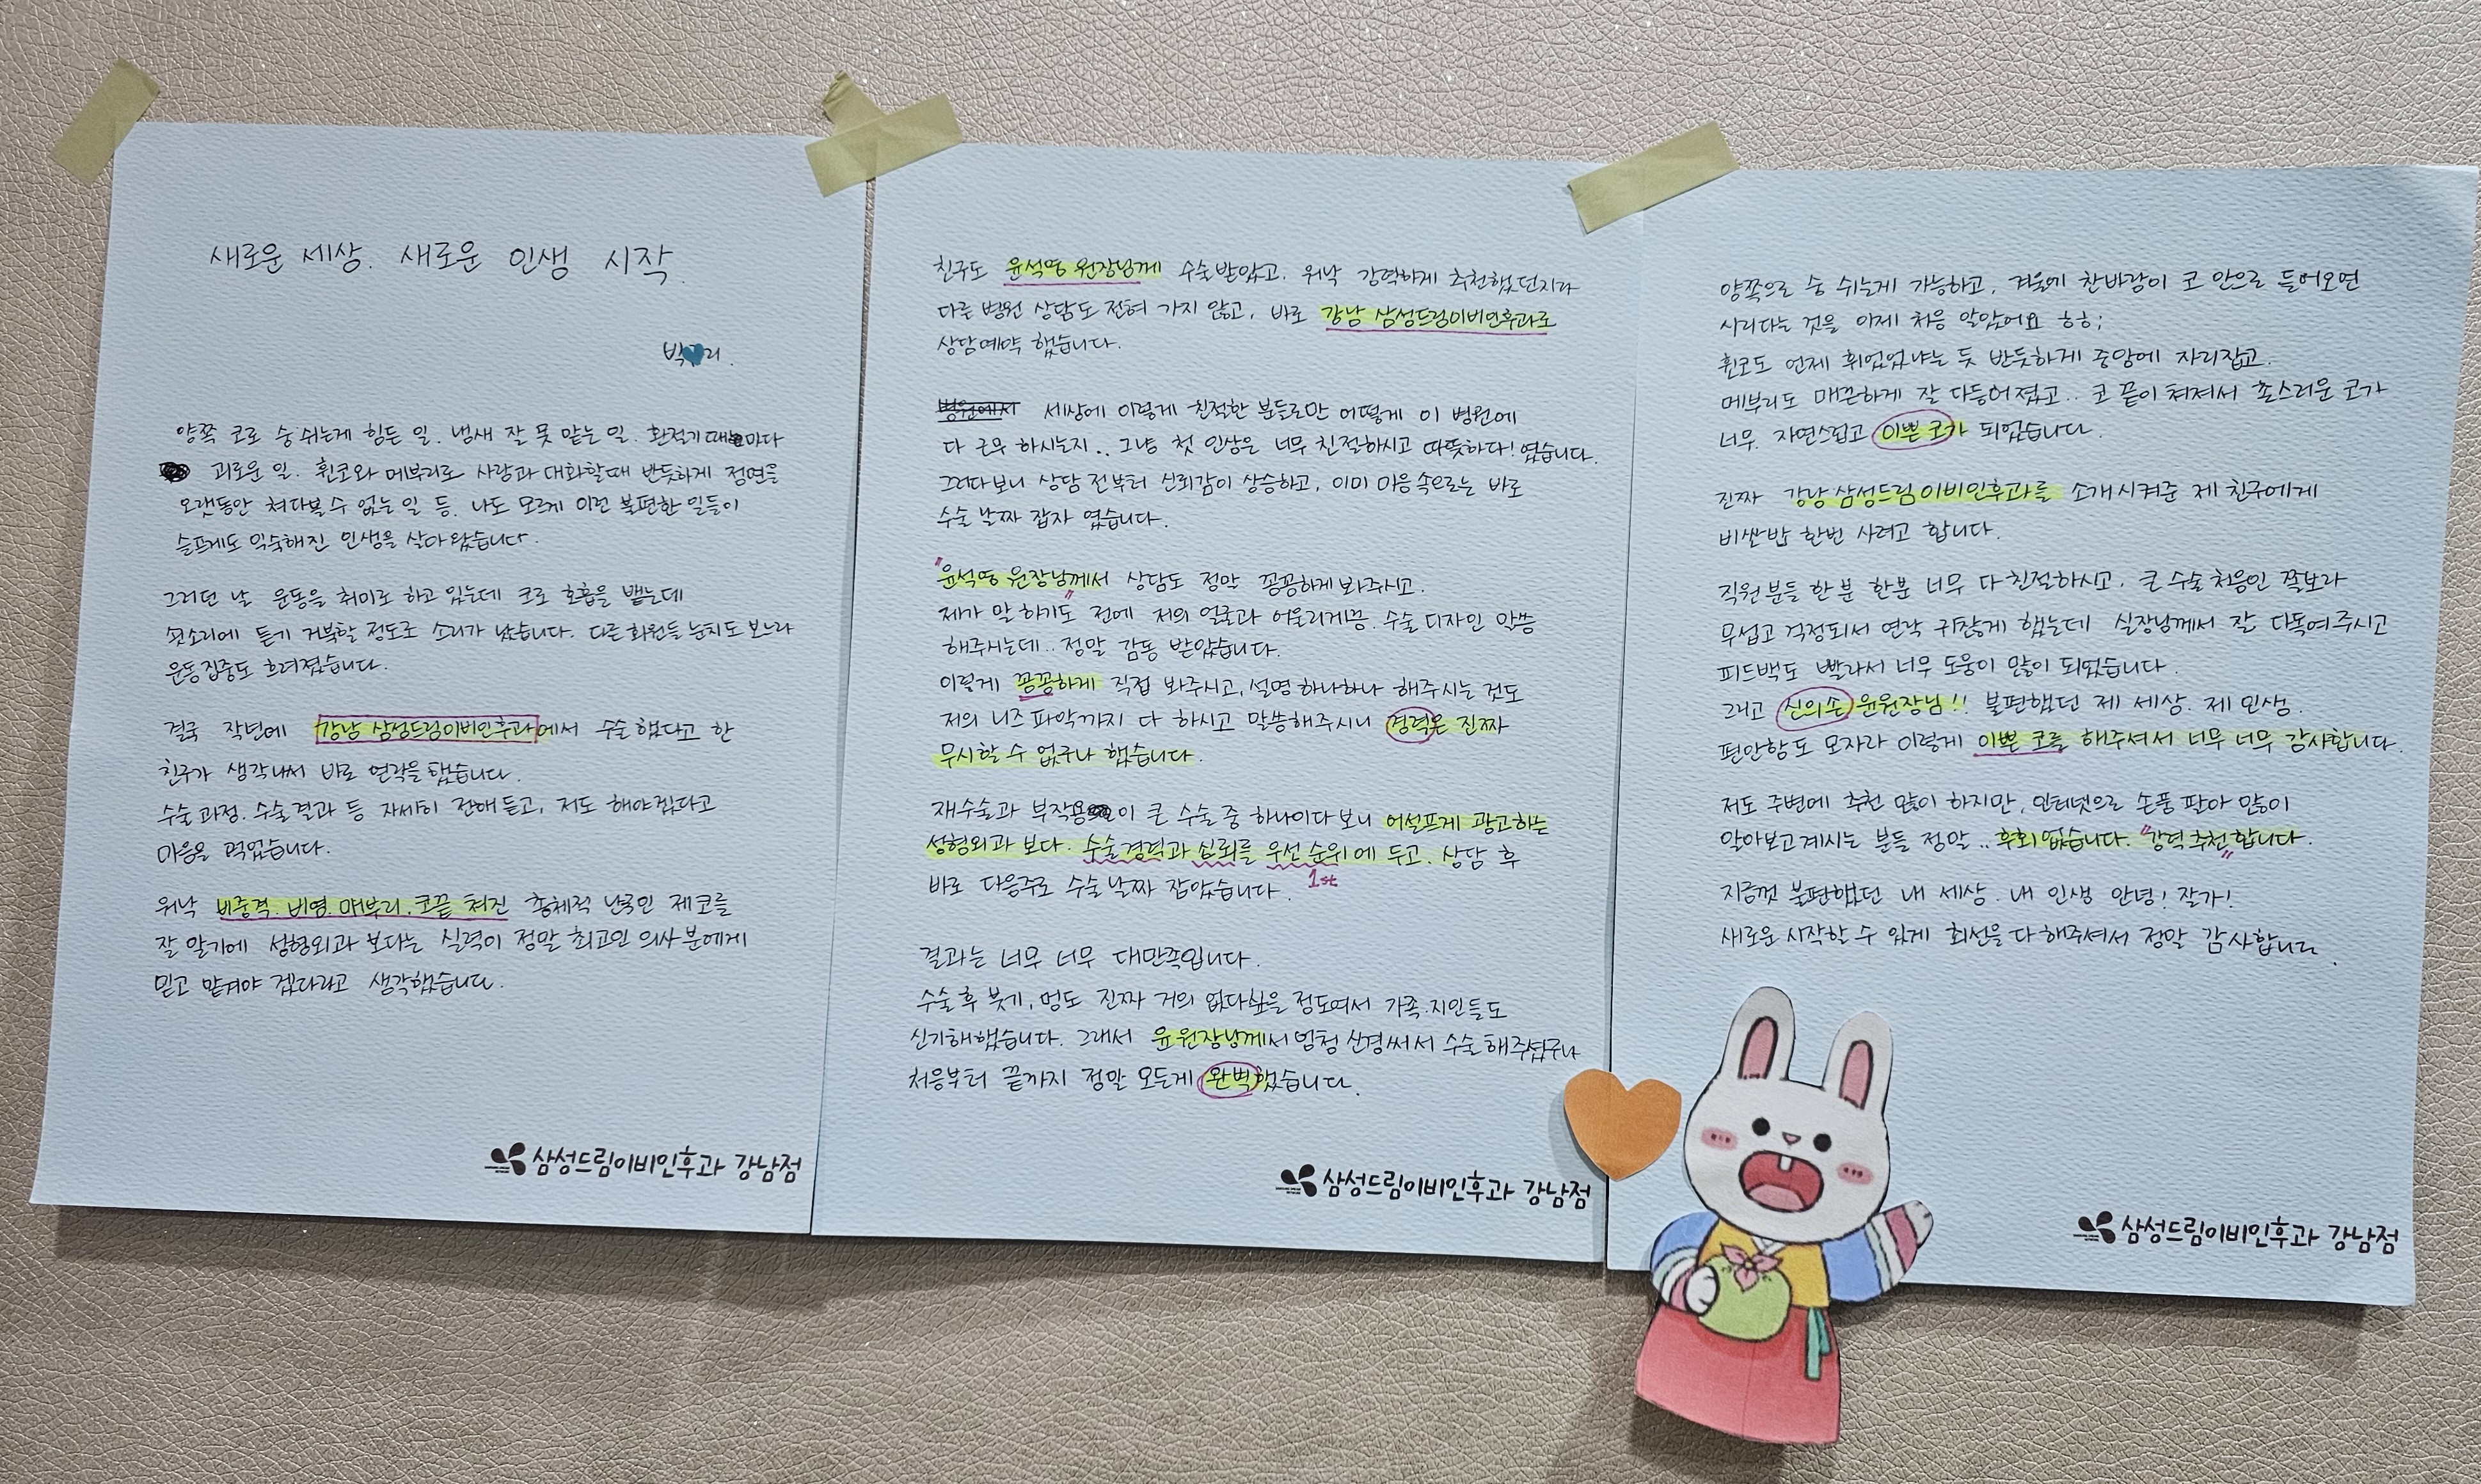 새로운 세상. 새로운 인생 시작.
박♥리.
양쪽 코로 숨 쉬는게 힘든 일. 냄새 잘 못 맡는 일. 환절기 때마다
괴로운 일. 휜코와 메부리로 사람과 대화할때 반듯하게 정면을
오랫동안 쳐다볼 수 없는 일 등. 나도 모르게 이런 불편한 일들이
슬프게도 익숙해진 인생을 살아왔습니다.
그러던 날 운동을 취미로 하고 있는데 코로 호흡을 뱉는데
쇳소리에 듣기 거북할 정도로 소리가 났습니다. 다른 회원들 눈치도 보느라
운동집중도 흐려졌습니다.
결국 작년에 강남 삼성드림이비인후과에서 수술 했다고 한
친구가 생각나서 바로 연락을 했습니다.
수술 과정. 수술 결과 등 자세히 전해 듣고, 저도 해야겠다고
마음을 먹었습니다.
워낙 비중격. 비염. 매부리. 코끝 쳐진 총체적 난국인 제 코를
잘 알기에 성형외과 보다는 실력이 정말 최고인 의사 분에게
믿고 맡겨야 겠다라고 생각했습니다.
삼성드림이비인후과 강남점
친구도 윤석영 원장님께 수술 받았고. 워낙 강력하게 추천했던지라
다른 병원 상담도 전혀 가지 않고, 바로 강남 삼성드림이비인후과로
상담예약 했습니다.
병원에서 세상에 이렇게 친절한 분들로만 어떻게 이 병원에
다 근무 하시는지.. 그냥 첫 인상은 너무 친절하시고 따뜻하다! 였습니다.
그러다보니 상담 전부터 신뢰감이 상승하고, 이미 마음속으로는 바로
수술 날짜 잡자 였습니다.
"윤석영 원장님"께서 상담도 정말 꼼꼼하게 봐주시고.
제가 말 하기도 전에 저의 얼굴과 어울리게끔. 수술 디자인 말씀
해주시는데.. 정말 감동 받았습니다.
이렇게 꼼꼼하게 직접 봐주시고, 설명 하나하나 해주시는 것도
저의 니즈 파악까지 다 하시고 말씀해주시니 경력은 진짜
무시할 수 없구나 했습니다.
재수술과 부작용이 큰 수술 중 하나이다 보니 어설프게 광고하는
성형외과 보다. 수술경력과 신뢰를 우선 순위에 두고. 상담 후
1st
바로 다음주로 수술 날짜 잡았습니다.
결과는 너무 너무 대만족입니다.
수술 후 붓기, 멍도 진짜 거의 없다싶을 정도여서 가족.지인들도
신기해했습니다. 그래서 윤원장님께서 엄청 신경써서 수술 해주셨구나
처음부터 끝까지 정말 모든게 완벽했습니다.
삼성드림이비인후과 강남점
양쪽으로 숨 쉬는게 가능하고, 겨울에 찬바람이 코 안으로 들어오면
시리다는 것을 이제 처음 알았어요 ㅎㅎ;
휜코도 언제 휘었었냐는 듯 반듯하게 중앙에 자리잡고.
메부리도 매끈하게 잘 다듬어졌고.. 코 끝이 쳐져서 촌스러운 코가
너무 자연스럽고 이쁜 코가 되었습니다.
진짜 강남 삼성드림 이비인후과를 소개시켜준 제 친구에게
비싼밥 한번 사려고 합니다.
직원분들 한 분 한분 너무 다 친절하시고, 큰 수술 처음인 쫄보라
무섭고 걱정되서 연락 귀찮게 했는데 실장님께서 잘 다독여주시고
피드백도 빨라서 너무 도움이 많이 되었습니다.
그리고 신의손 윤원장님!! 불편했던 제 세상. 제 인생.
편안함도 모자라 이렇게 이쁜 코를 해주셔서 너무 너무 감사합니다.
저도 주변에 추천 많이 하지만, 인터넷으로 손품 팔아 많이
알아보고계시는 분들 정말.. 후회 없습니다. "강력추천"합니다.
지금껏 불편했던 내 세상. 내 인생 안녕! 잘가!
새로운 시작할 수 있게 최선을 다 해주셔서 정말 감사합니다.
삼성드림이비인후과 강남점